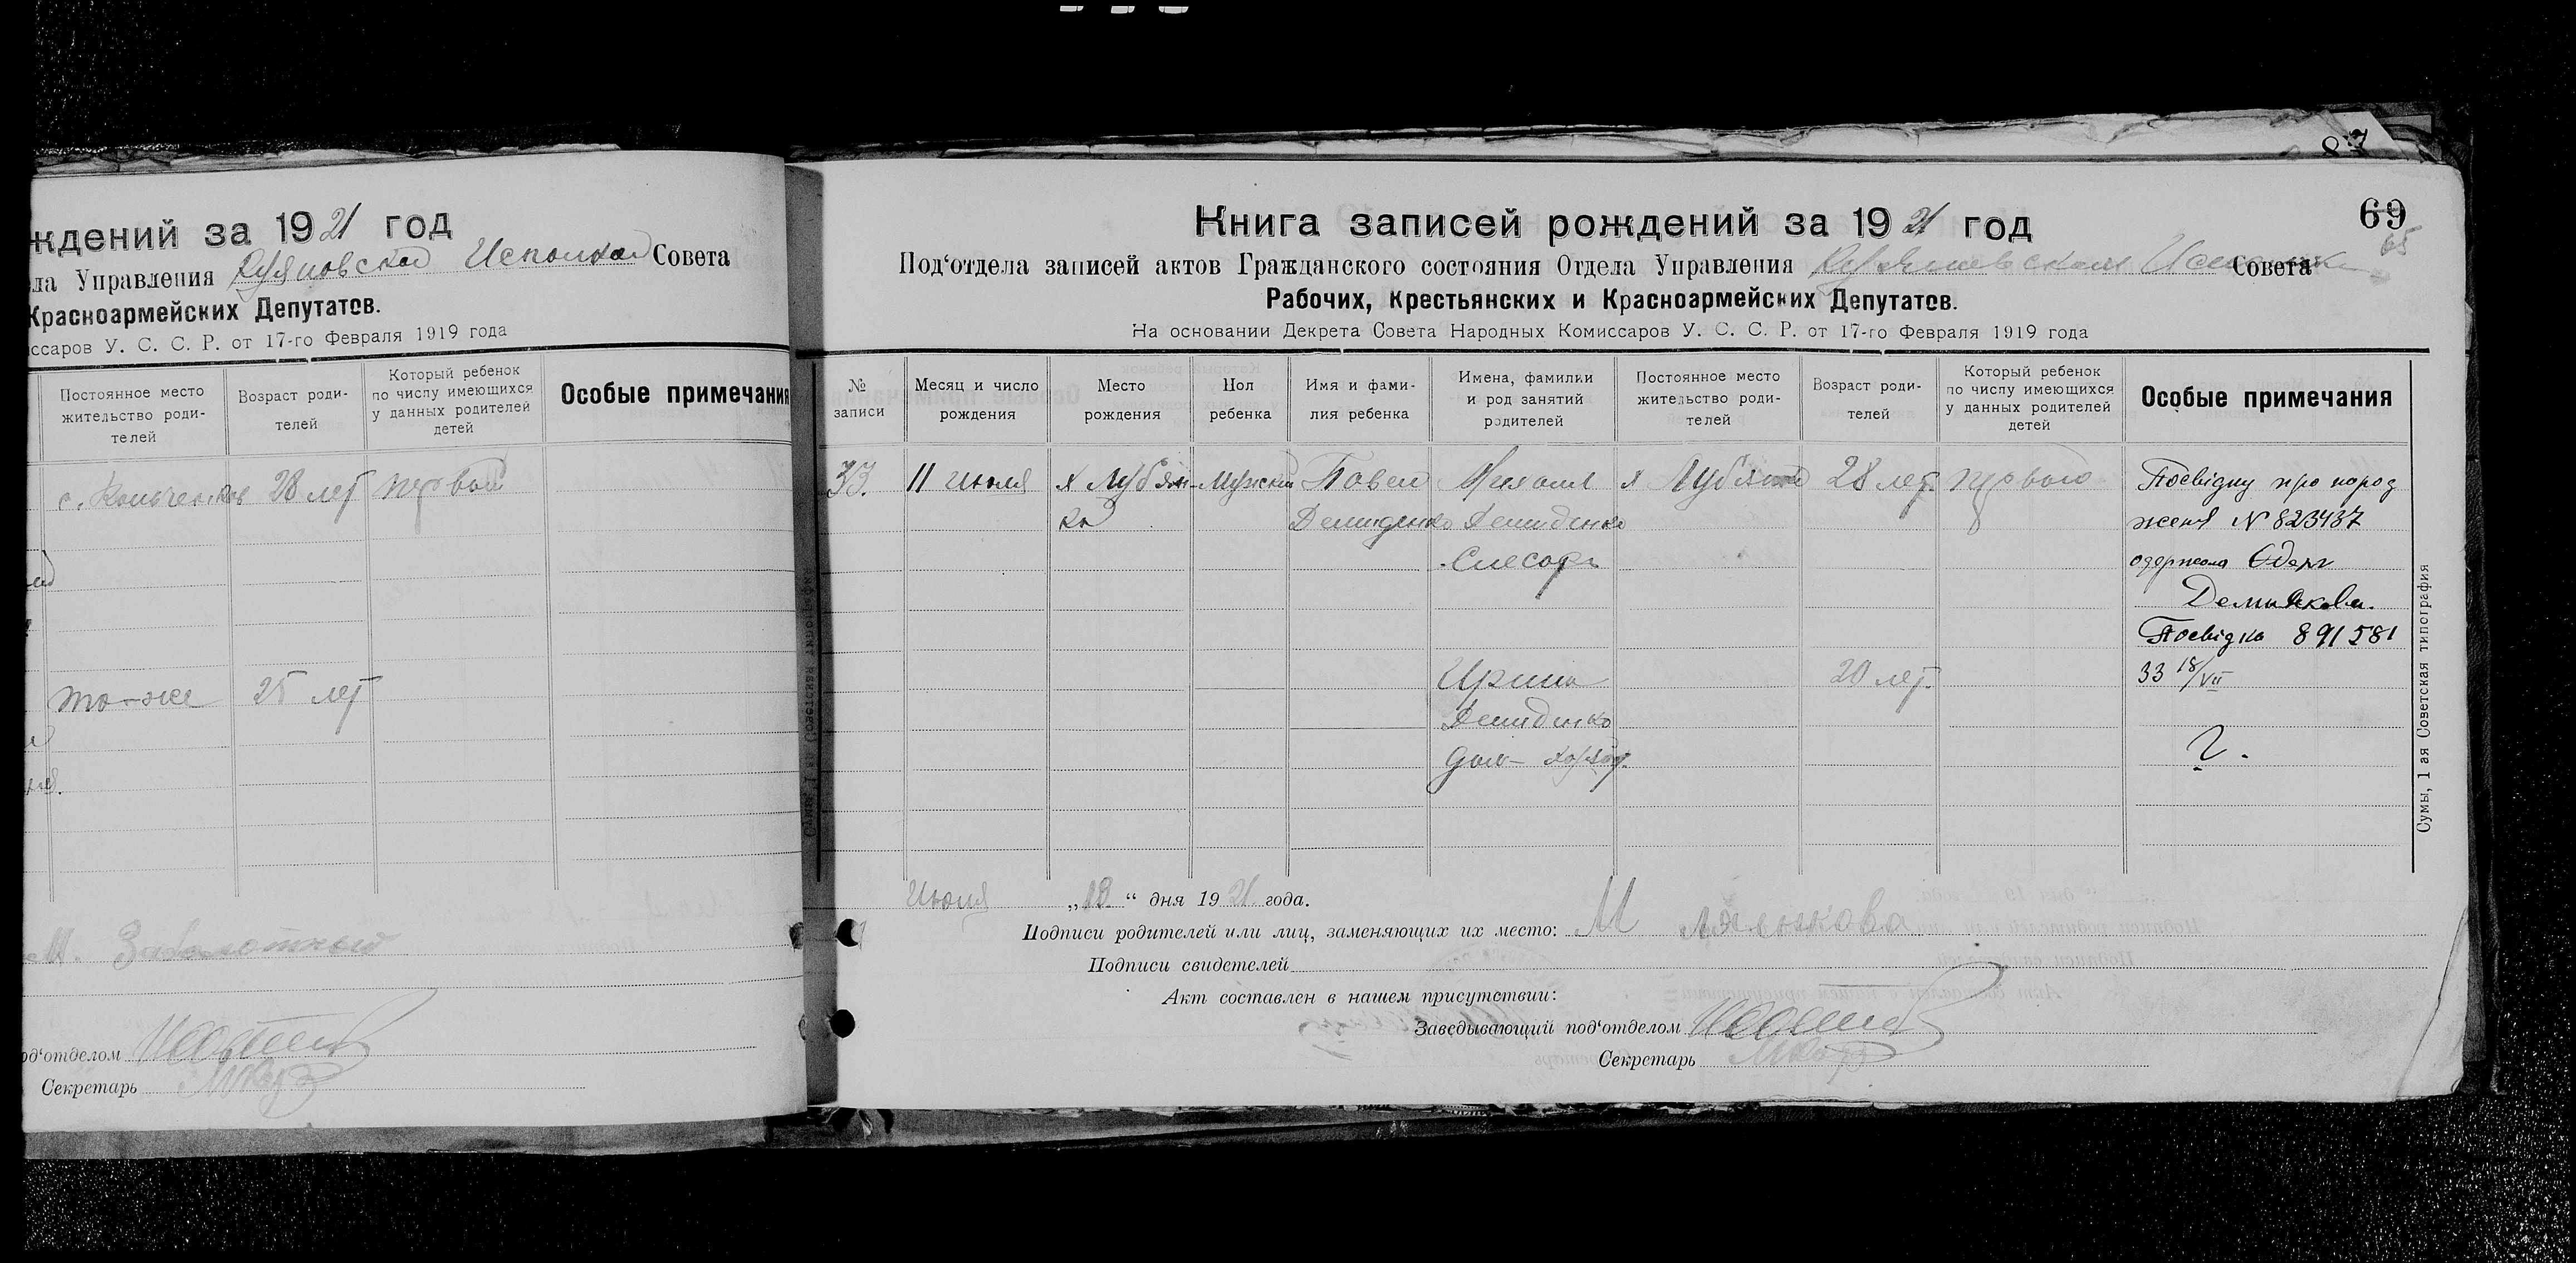 ждений за 1921 год
ла Управления Исполком Совета
Красноармейских Депутатов.
ссаров У. С. С. Р. от 17-го Февраля 1919 года
Постоянное место жительство роди-телей
Возраст роди-телей
Который ребенок по числу имеющихся у данных родителей детей
Особые примечания
28 лет первый
то-же 25 лет
М. Заболотный
од‘отделом
Секретарь
87
69
65
Книга записей рождений за 1921 год
Под‘отдела записей актов Гражданского состояния Отдела Управления Совета
Рабочих, Крестьянских и Красноармейских Депутатов.
На основании Декрета Совета Народных Комиссаров У. С. С. Р. от 17-го Февраля 1919 года
№ записи
Месяц и число рождения
Место рождения
Пол ребенка
Имя и фами-лия ребенка
Имена, фамилии и род занятий родителей
Постоянное место жительство роди-телей
Возраст роди-телей
Который ребенок по числу имеющихся у данных родителей детей
Особые примечания
33. 11 июля х Лубян- Мужски Павел Михаил х Лубянка 28 лет. первого Посвідку про народ
ка Демиденко Демиденко ження N 823437
Слесарь одержала
Посвідка 891581
Ирина 20 лет. 33 18/VII
Демиденко
дом-
?.
Июля „13“ дня 1921 года.
Подписи родителей или лиц, заменяющих их место: М
Подписи свидетелей
Акт составлен в нашем присутствии:
Заведывающий под‘отделом
Секретарь
Сумы, 1 ая Советская типография